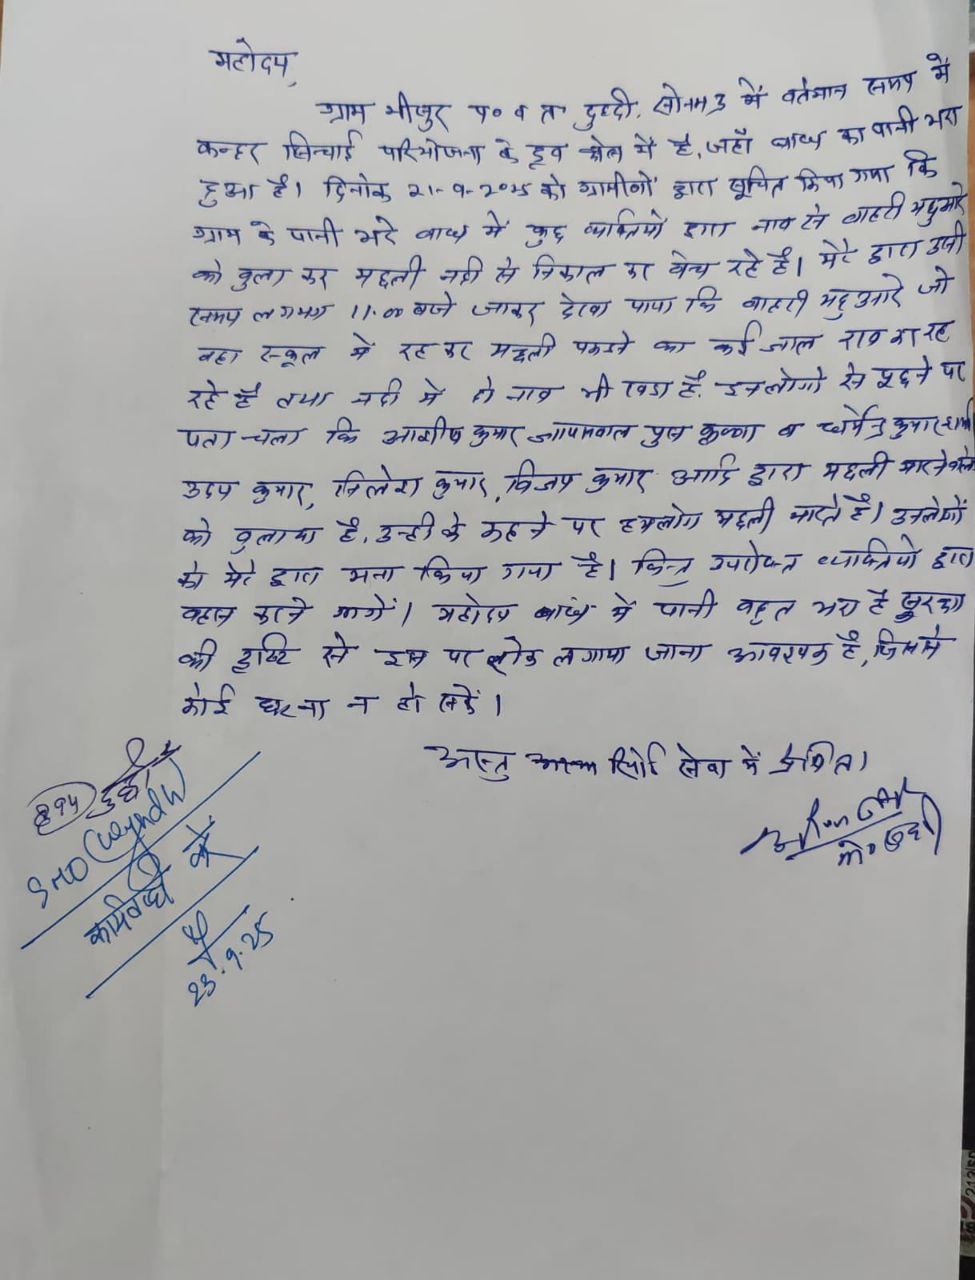 महोदय,
ग्राम भीसुर प० व त० दुद्धी, सोनभद्र में वर्तमान समय में
कनहर सिन्चाई परियोजना के डूब क्षेत्र में है, जहाँ बान्ध का पानी भरा
हुआ है। दिनांक 21-9-2025 को ग्रामीणों द्वारा सूचित किया गया कि
ग्राम के पानी भरे बान्ध में कुछ व्यक्तियों द्वारा नाव से बाहरी मछुआरे
को बुला कर मछली नदी से निकाल कर बेच रहे है। मेरे द्वारा उसी
समय लगभग 11.00 बजे जाकर देखा पाया कि बाहरी मछुआरे जो
वहा स्कूल में रह कर मछली पकडने का कई जाल रख कर रह
रहे है तथा नदी में दो नाव भी खडा है. इनलोगो से पूछने पर
पता चला कि आशीष कुमार जायसवाल पुत्र कृष्णा व धर्मेन्द्र कुमार
उदय कुमार, निलेश कुमार, विजय कुमार आदि द्वारा मछली मारने वाले
को बुलाया है, उन्ही के कहने पर हमलोग मछली मारते है। उनलोगों
को मेरे द्वारा मना किया गया है। किन्तु उपरोक्त व्यक्तियो द्वारा
वहस करने लागे। महोदय बान्ध में पानी बहुत भरा है सुरक्षा
की दृष्टि से इस पर रोक लगाया जाना आवश्यक है, जिससे
कोई घटना न हो सकें।
अस्तु आख्या रिपोर्ट सेवा में प्रेषित।
894 दुद्धी
SHO
कार्यवाही करें
23.9.25